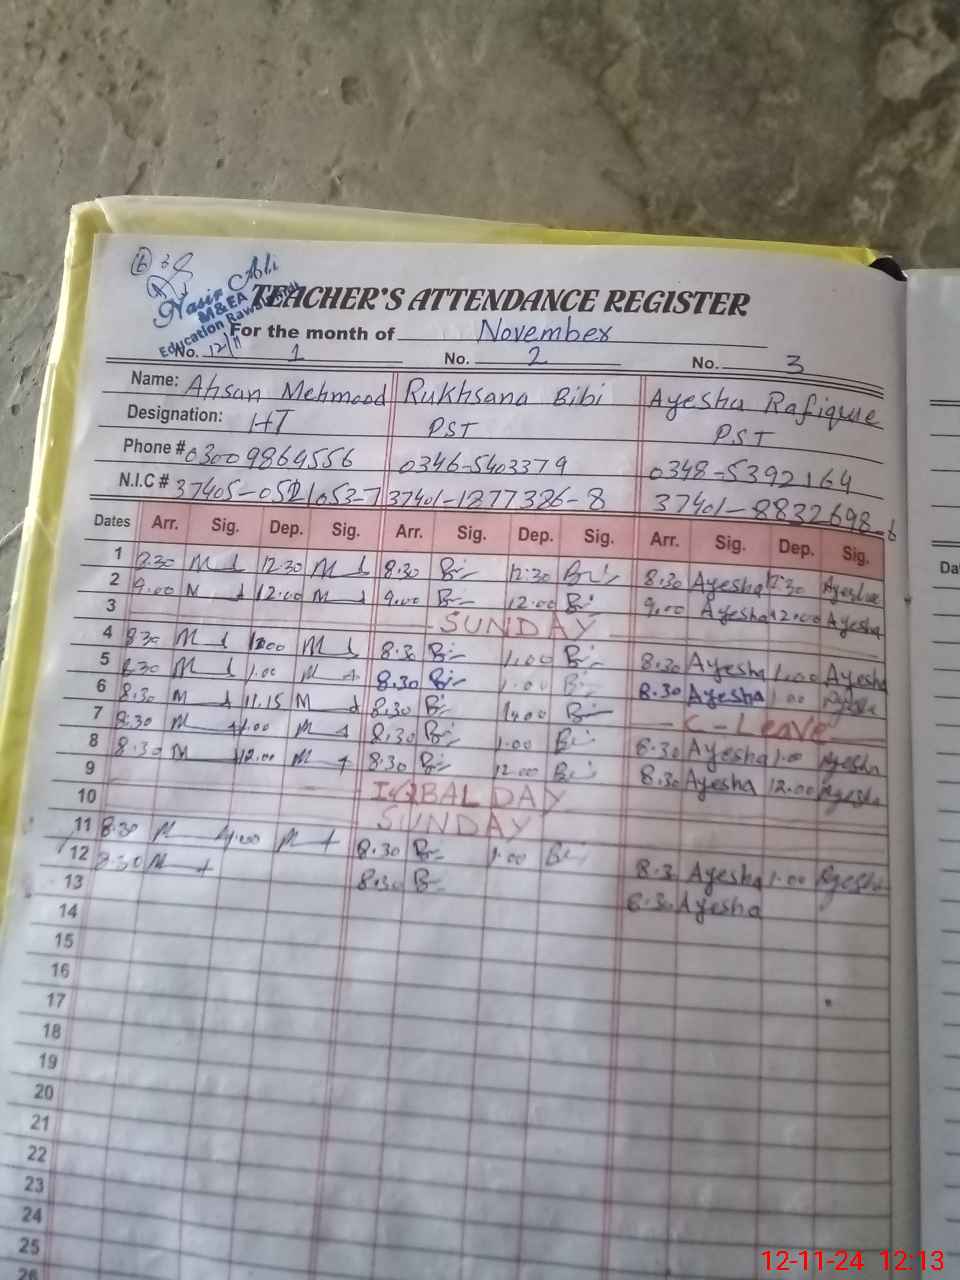 Nasir Ali
M&EA
Education Rawalpindi
12/11
TEACHER'S ATTENDANCE REGISTER
For the month of November
No. 1 No. 2 No. 3
Name: Ahsan Mehmood Rukhsana Bibi Ayesha Rafique
Designation: HT PST PST
Phone # 03009864556 0346-5403379 0348-5392164
N.I.C # 37401-1277326-8 37401-8832698-6
Dates Arr. Sig. Dep. Sig. Arr. Sig. Dep. Sig. Arr. Sig. Dep. Sig.
1 8.30 12.30 8.30 12:30 8.30 Ayesha 12:30 Ayesha
2 9.00 12.00 9.00 12.00 9.00 Ayesha 12.00 Ayesha
3 SUNDAY
4 8.30 8.30 1.00 8.30 Ayesha 1.00 Ayesha
5 8.30 1.00 8.30 1.00 8.30 Ayesha 1.00 Ayesha
6 8.30 11.15 8.30 1.00 C-Leave
7 8:30 1.00 8.30 1.00 8.30 Ayesha 1.00 Ayesha
8 8.30 12.00 8.30 12.00 8.30 Ayesha 12.00 Ayesha
9 IQBAL DAY
10 SUNDAY
11 8.30 1.00 8.30 1.00 8.3 Ayesha 1.00 Ayesha
12 8.30 8.30 8.3 Ayesha
13
14
15
16
17
18
19
20
21
22
23
24
25
26
12-11-24 12:13